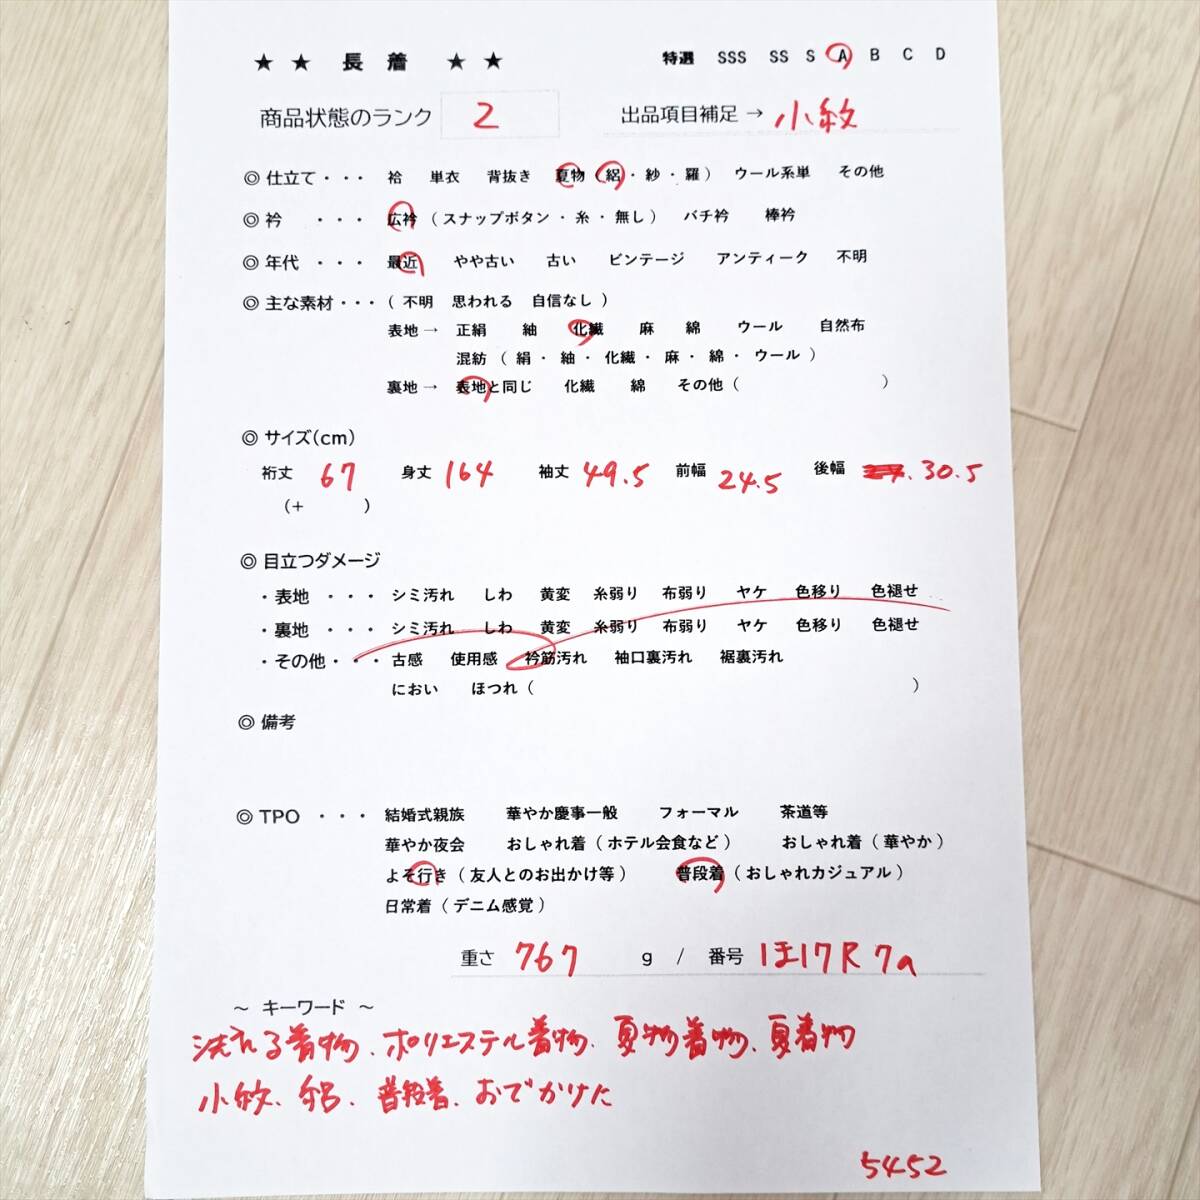 ★ ★ 長 着 ★ ★ 特選 SSS SS S A B C D
商品状態のランク 2 出品項目補足 → 小紋
◎ 仕立て ・・・ 袷 単衣 背抜き 夏物 ( 絽 ・ 紗 ・ 羅 ) ウール系単 その他
◎ 衿 ・・・ 広衿 ( スナップボタン ・ 糸 ・ 無し ) バチ衿 棒衿
◎ 年代 ・・・ 最近 やや古い 古い ビンテージ アンティーク 不明
◎ 主な素材 ・・・ ( 不明 思われる 自信なし )
表地 → 正絹 紬 化繊 麻 綿 ウール 自然布
混紡 ( 絹 ・ 紬 ・ 化繊 ・ 麻 ・ 綿 ・ ウール )
裏地 → 表地と同じ 化繊 綿 その他 ( )
◎ サイズ(cm)
裄丈 67 身丈 164 袖丈 49.5 前幅 24.5 後幅 30.5
(+ )
◎ 目立つダメージ
・ 表地 ・・・ シミ汚れ しわ 黄変 糸弱り 布弱り ヤケ 色移り 色褪せ
・ 裏地 ・・・ シミ汚れ しわ 黄変 糸弱り 布弱り ヤケ 色移り 色褪せ
・ その他 ・・・ 古感 使用感 衿筋汚れ 袖口裏汚れ 裾裏汚れ
におい ほつれ ( )
◎ 備考
◎ TPO ・・・ 結婚式親族 華やか慶事一般 フォーマル 茶道等
華やか夜会 おしゃれ着 ( ホテル会食など ) おしゃれ着 ( 華やか )
よそ行き ( 友人とのお出かけ等 ) 普段着 ( おしゃれカジュアル )
日常着 ( デニム感覚 )
重さ 767 g / 番号 ほ17R7a
～ キーワード ～
洗える着物、ポリエステル着物、夏物着物、夏着物
小紋、絽、普段着、おでかけに
5452